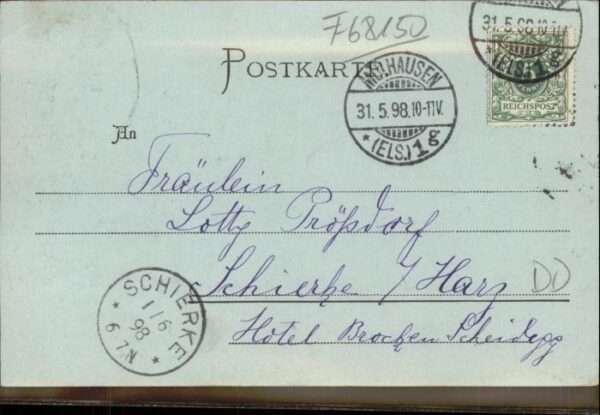 F68150
POSTKARTE
MÜLHAUSEN
31.5.98.10-11V.
* (ELS.) 1g
31.5.98.10-11V.
* (ELS.) 1g
REICHSPOST
An
Fräulein
Lotty Prößdorf
Schierke / Harz
DD
Hôtel Brocken Scheidegg
SCHIERKE
1 1 6
98
* 6-7N *